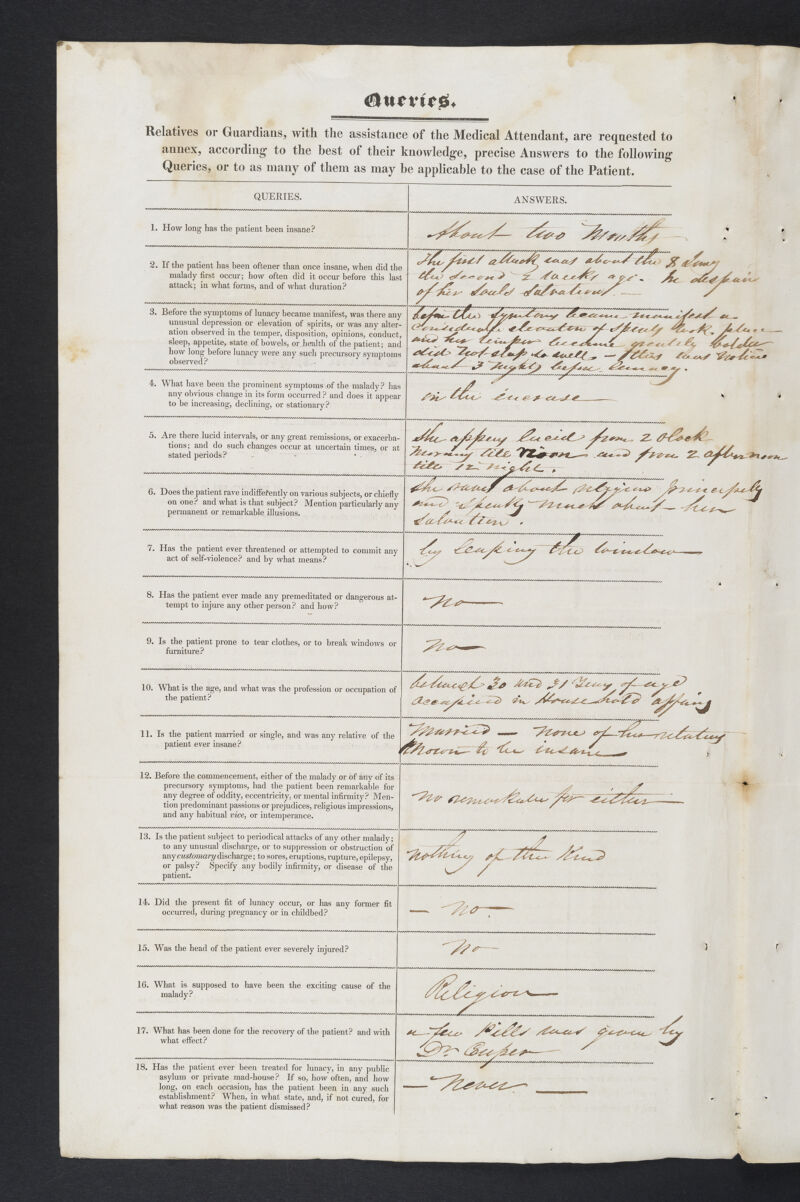 Queries.
Relatives or Guardians, with the assistance of the Medical Attendant, are requested to
annex, according to the best of their knowledge, precise Answers to the following
Queries, or to as many of them as may be applicable to the case of the Patient.
QUERIES.
ANSWERS.
1. How long has the patient been insane?
About two Months
2. If the patient has been oftener than once insane, when did the
malady first occur; how often did it occur before this last
attack; in what forms, and of what duration?
The first attack was about the 8
the second 2 weeks ago. In despair
of her Souls Salvation. —
3. Before the symptoms of lunacy became manifest, was there any
unusual depression or elevation of spirits, or was any alter-
ation observed in the temper, disposition, opinions, conduct,
sleep, appetite, state of bowels, or health of the patient; and
how long before lunacy were any such precursory symptoms
observed?
before the Symtoms became manifest a
elevation of took place
and her temper became
did not sleep so well — this was
about 3 nights before lunacy.
4. What have been the prominent symptoms of the malady? has
any obvious change in its form occurred? and does it appear
to be increasing, declining, or stationary?
on the increase
5. Are there lucid intervals, or any great remissions, or exacerba-
tions; and do such changes occur at uncertain times, or at
stated periods?
She lucid from 2 oClock
Morning till Noon and from 2 afternoon
till 12 night.
6. Does the patient rave indifferently on various subjects, or chiefly
on one? and what is that subject? Mention particularly any
permanent or remarkable illusions.
She raves about religion
and Speaks much about her
Salvation.
7. Has the patient ever threatened or attempted to commit any
act of self-violence? and by what means?
by leaping the window
8. Has the patient ever made any premeditated or dangerous at-
tempt to injure any other person? and how?
No
9. Is the patient prone to tear clothes, or to break windows or
furniture?
No
10. What is the age, and what was the profession or occupation of
the patient?
between 30 and 31 Years of age
occupied in Household affairs
11. Is the patient married or single, and was any relative of the
patient ever insane?
Married — None of her relatives
Known to be insane
12. Before the commencement, either of the malady or of any of its
precursory symptoms, had the patient been remarkable for
any degree of oddity, eccentricity, or mental infirmity? Men-
tion predominant passions or prejudices, religious impressions,
and any habitual vice, or intemperance.
no for either
13. Is the patient subject to periodical attacks of any other malady;
to any unusual discharge, or to suppression or obstruction of
any customary discharge; to sores, eruptions, rupture, epilepsy,
or palsy? Specify any bodily infirmity, or disease of the
patient.
Nothing of the Kind
14. Did the present fit of lunacy occur, or has any former fit
occurred, during pregnancy or in childbed?
— No —
15. Was the head of the patient ever severely injured?
No
16. What is supposed to have been the exciting cause of the
malady?
Religion
17. What has been done for the recovery of the patient? and with
what effect?
a few Pills was given by
Dr
18. Has the patient ever been treated for lunacy, in any public
asylum or private mad-house? If so, how often, and how
long, on each occasion, has the patient been in any such
establishment? When, in what state, and, if not cured, for
what reason was the patient dismissed?
— Never —